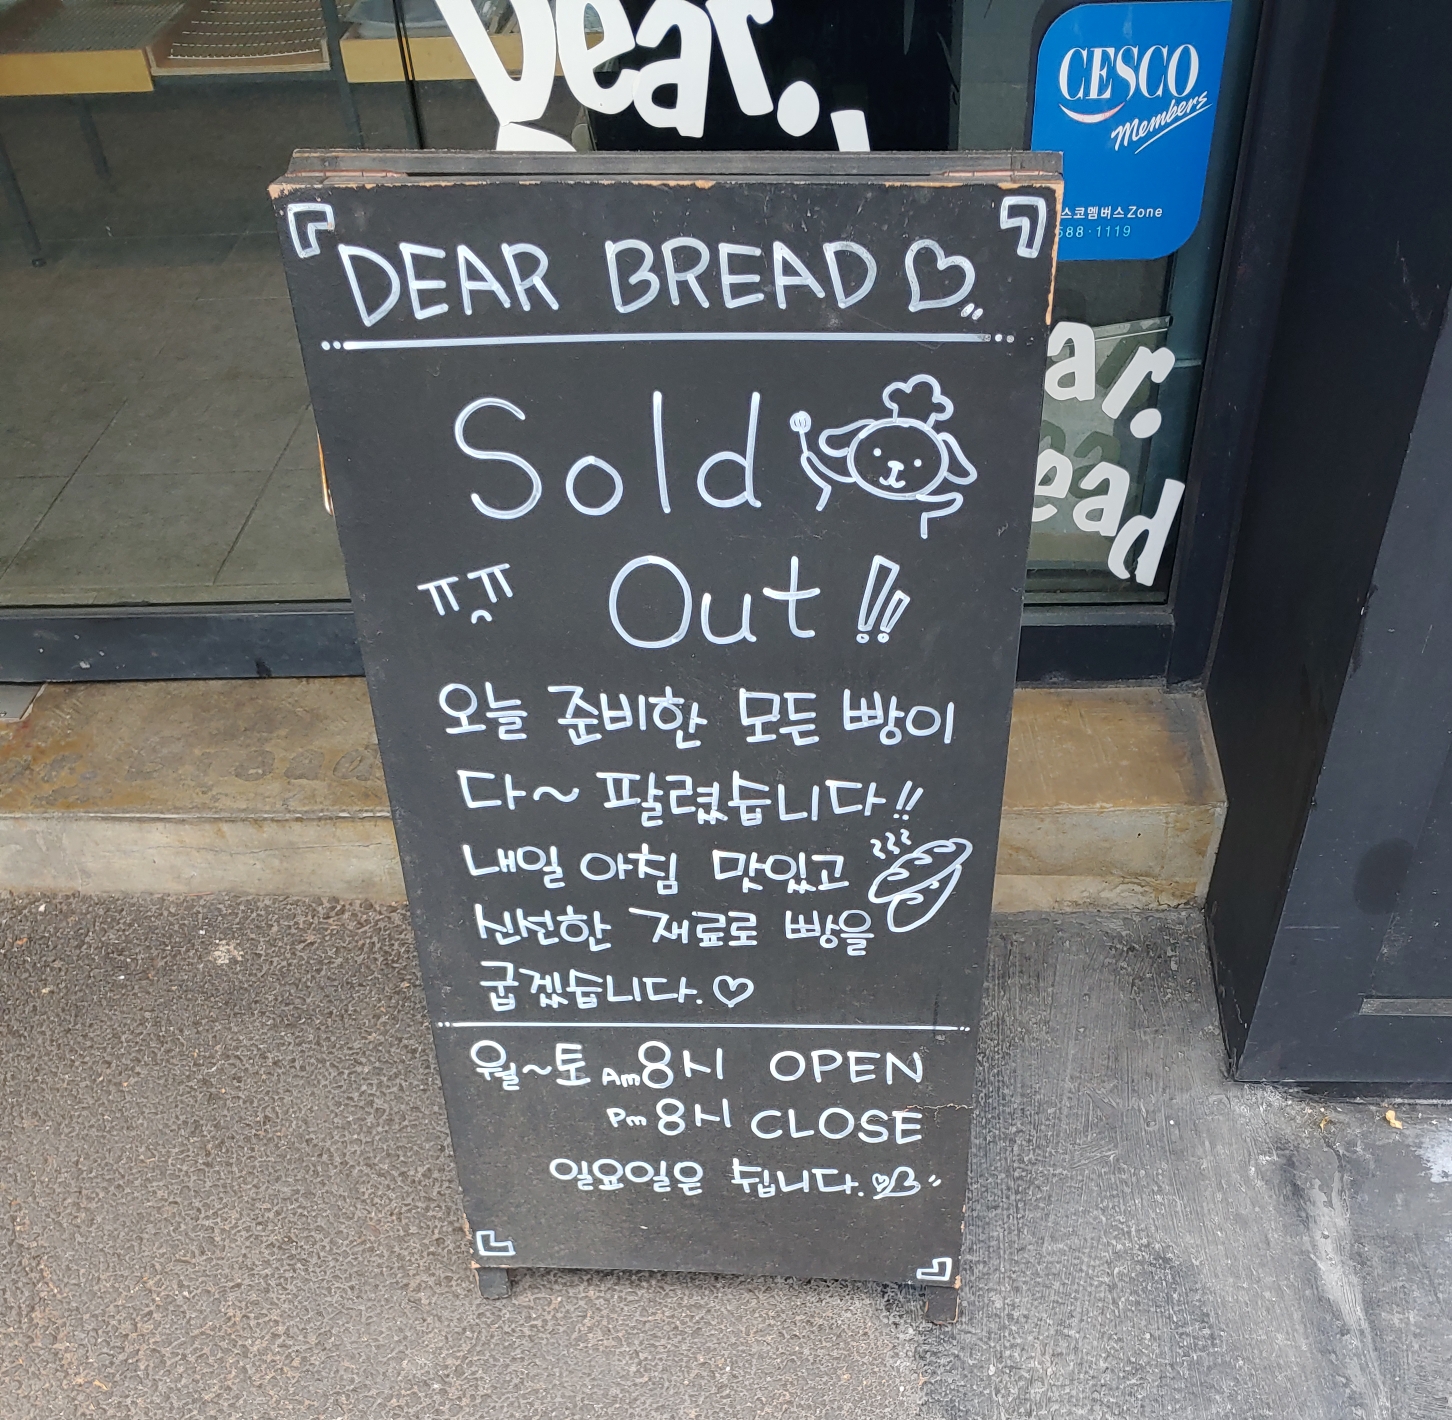 Dear.
CESCO
Members
스코멤버스Zone
588·1119
DEAR BREAD
Sold
ㅠㅠ Out!!
오늘 준비한 모든 빵이
다~ 팔렸습니다!!
내일 아침 맛있고
신선한 재료로 빵을
굽겠습니다.♡
월~토 Am8시 OPEN
Pm 8시 CLOSE
일요일은 쉽니다.
ar.
ead